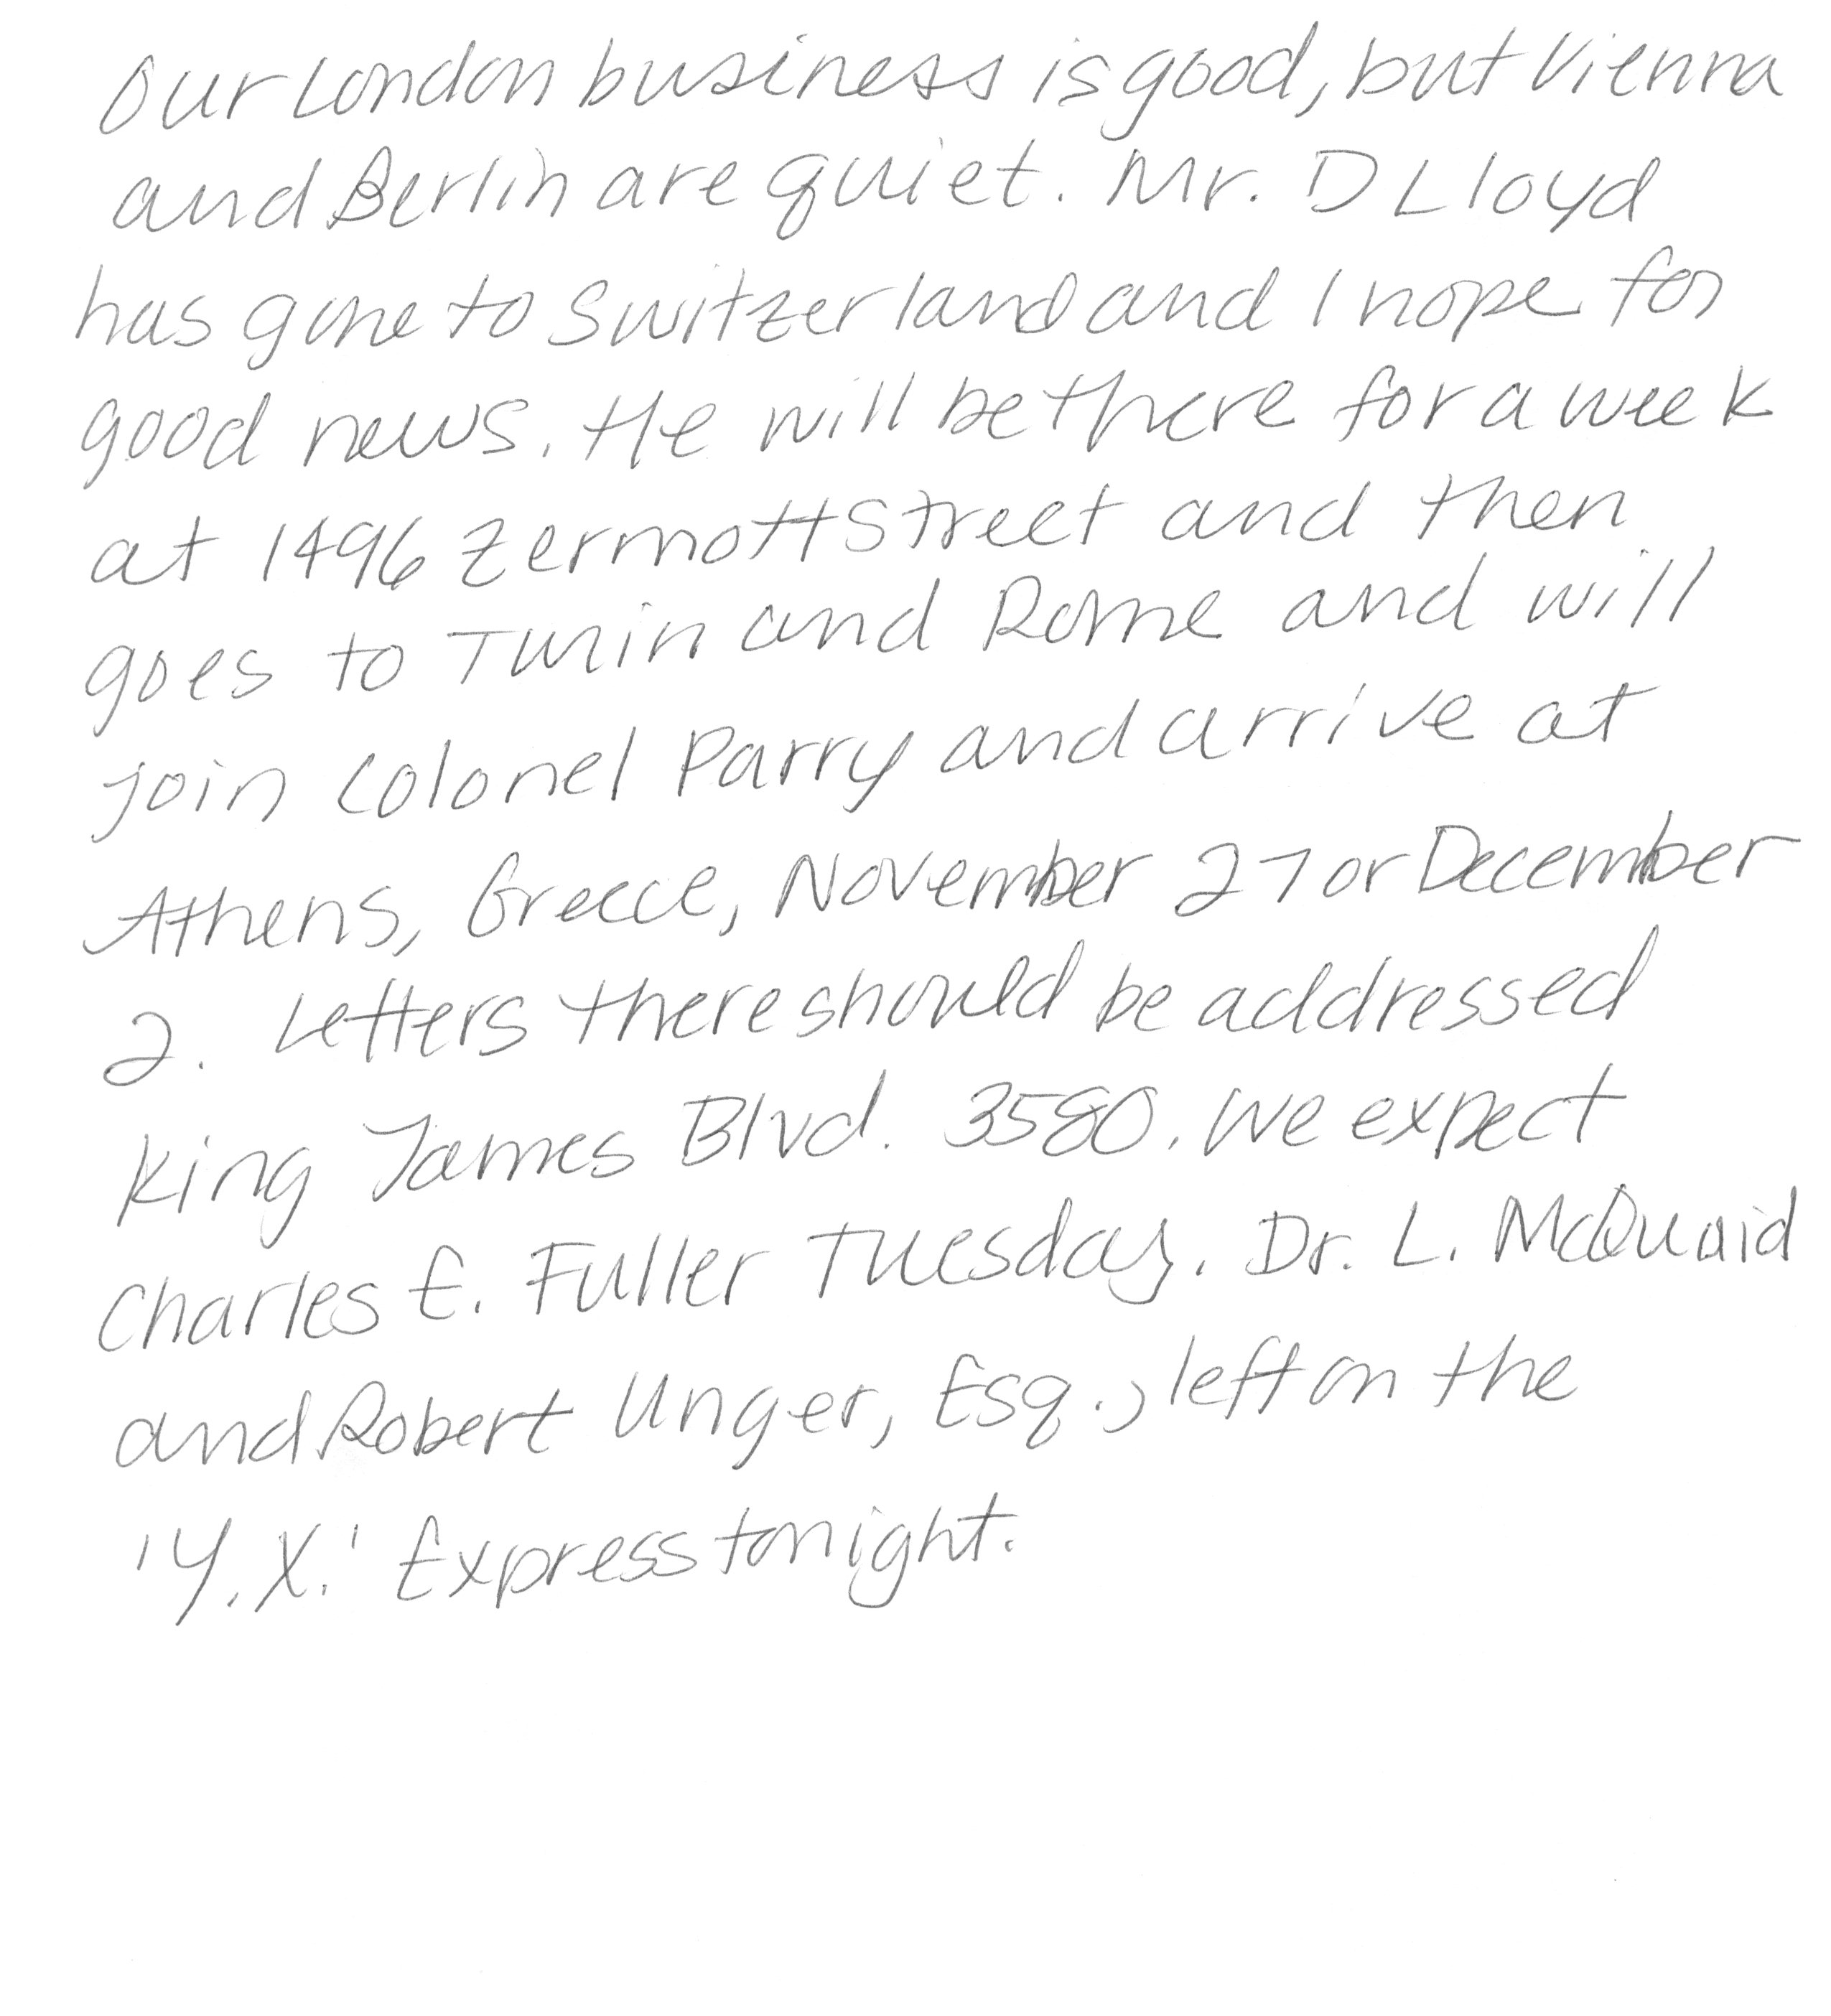 Our London business is good, but Vienna
and Berlin are quiet. Mr. D Lloyd
has gone to Switzerland and I hope for
good news. He will be there for a week
at 1496 Zermott Street and then
goes to Turin and Rome and will
join Colonel Parry and arrive at
Athens, Greece, November 27 or December
2. Letters there should be addressed
King James Blvd. 3580. We expect
Charles E. Fuller Tuesday. Dr. L. McQuaid
and Robert Unger, Esq., left on the
'Y. X.' Express tonight.